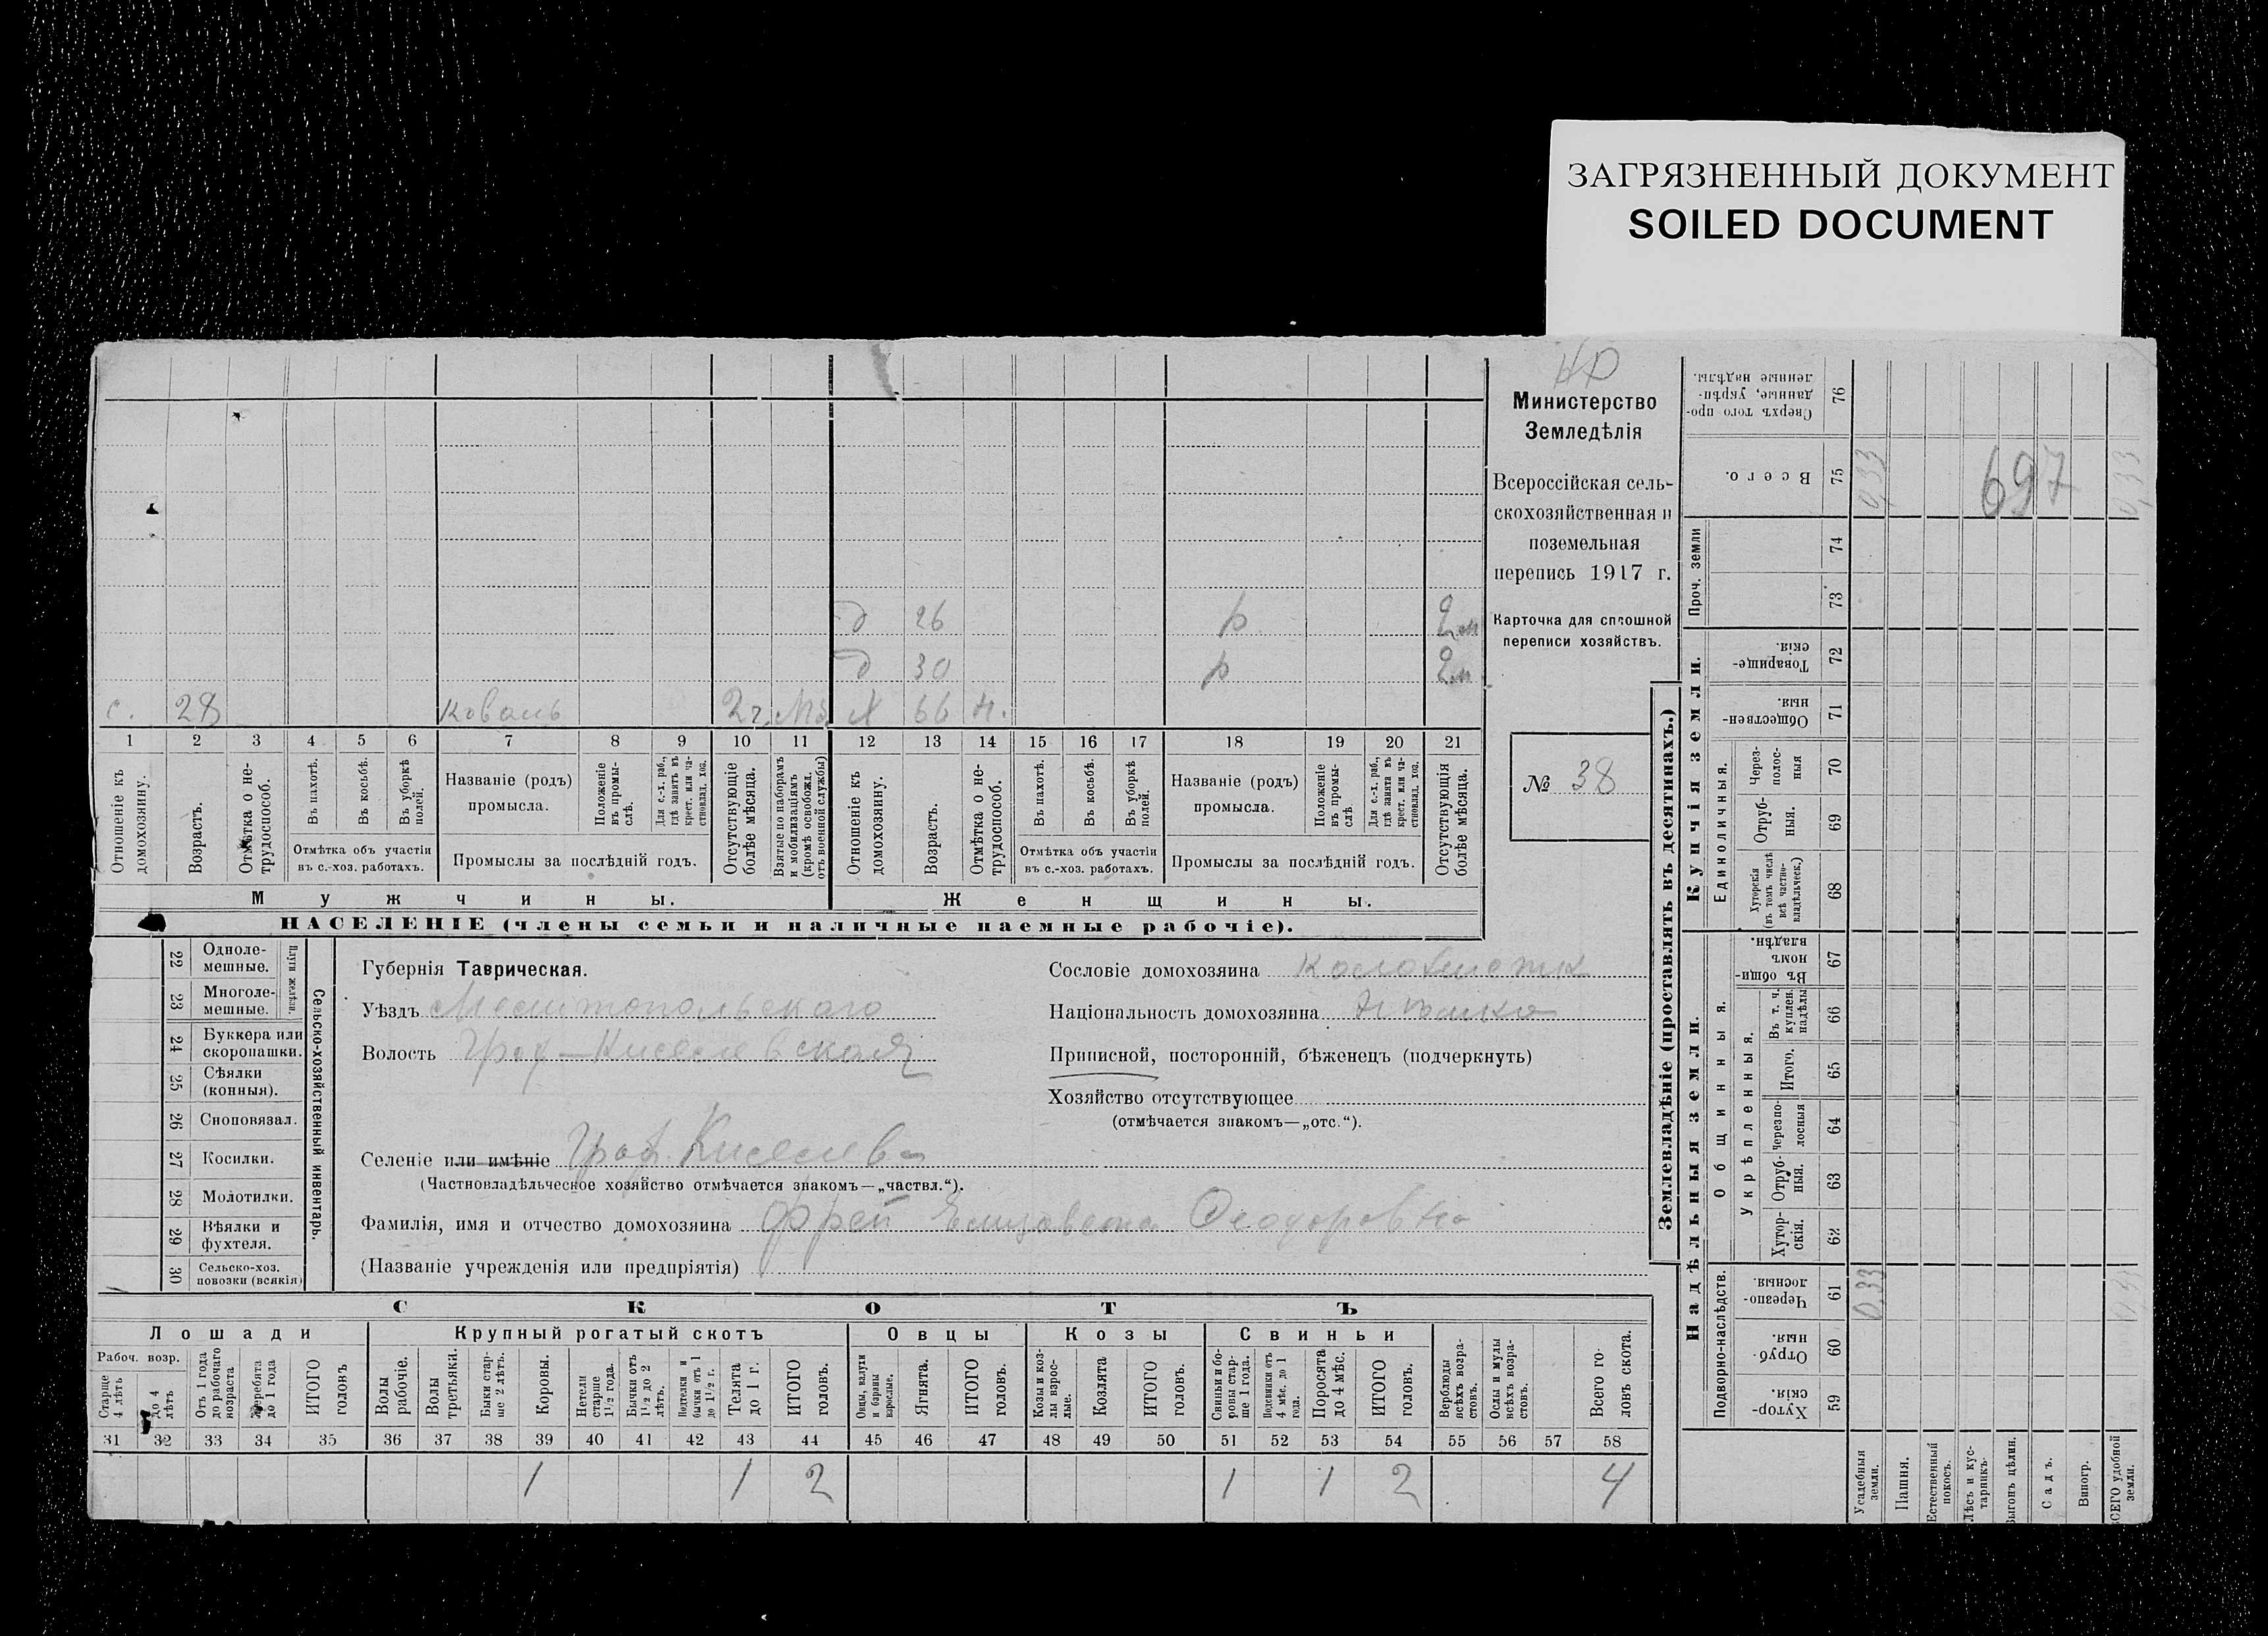 ЗАГРЯЗНЕННЫЙ ДОКУМЕНТ
SOILED DOCUMENT
Министерство
Земледѣлія
Всероссійская сель-
скохозяйственная и
поземельная
перепись 1917 г.
Карточка для сплошной
переписи хозяйствъ.
№ 38
д 26 р 2 м
д 30 р 2 м
с. 28 коваль 2 г. Мб. Х 66 н.
1 2 3 4 5 6 7 8 9 10 11 12 13 14 15 16 17 18 19 20 21
Отношеніе къ домохозяину.
Возрастъ.
Отмѣтка о не-трудоспособ.
Въ пахотѣ.
Въ косьбѣ.
Въ уборкѣ полей.
Отмѣтка объ участіи
въ с.-хоз. работахъ.
Названіе (родъ)
промысла.
Положеніе въ промы-слѣ.
Для с.-х. раб., гдѣ занятъ въ крест. или ча-стновлад. хоз.
Промыслы за послѣдній годъ.
Отсутствующіе болѣе мѣсяца.
Взятые по наборамъ и мобилизаціямъ (кромѣ освобожд. отъ военной службы)
Отношеніе къ домохозяину.
Возрастъ.
Отмѣтка о не-трудоспособ.
Въ пахотѣ.
Въ косьбѣ.
Въ уборкѣ полей.
Отмѣтка объ участіи
въ с.-хоз. работахъ.
Названіе (родъ)
промысла.
Положеніе въ промы-слѣ.
Для с.-х. раб., гдѣ занята въ крест. или ча-стновлад. хоз.
Промыслы за послѣдній годъ.
Отсутствующія болѣе мѣсяца.
Мужчины.
Женщины.
НАСЕЛЕНІЕ (члены семьи и наличные наемные рабочіе).
Сельско-хозяйственный инвентарь.
Плуги желѣзн.
22 Одноле-мешные.
23 Многоле-мешные.
24 Буккера или скоропашки.
25 Сѣялки (конныя).
26 Сноповязал.
27 Косилки.
28 Молотилки.
29 Вѣялки и фухтеля.
30 Сельско-хоз. повозки (всякія)
Губернія Таврическая.
Уѣздъ Мелитопольскаго
Волость Граф-Киселевская
Селеніе или имѣніе Граф. Киселево
(Частновладѣльческое хозяйство отмѣчается знакомъ—„частвл.“).
Фамилія, имя и отчество домохозяина Фрей Елизавета Феодоровна
(Названіе учрежденія или предпріятія)
Сословіе домохозяина
Національность домохозяина
Приписной, посторонній, бѣженецъ (подчеркнуть)
Хозяйство отсутствующее
(отмѣчается знакомъ—„отс.“).
СКОТЪ
Лошади
Рабоч. возр.
Старше 4 лѣтъ
до 4 лѣтъ
Отъ 1 года до рабочаго возраста
Жеребята до 1 года
ИТОГО головъ
Крупный рогатый скотъ
Волы рабочіе.
Волы третьяки.
Быки стар-ше 2 лѣтъ.
Коровы.
Нетели старше 1½ года.
Бычки отъ 1½ до 2 лѣтъ.
Подтелки и бычки отъ 1 до 1½ г.
Телята до 1 г.
ИТОГО головъ.
Овцы
Овцы, валухи и бараны взрослые.
Ягнята.
ИТОГО головъ.
Козы
Козы и коз-лы взрос-лые.
Козлята
ИТОГО головъ.
Свиньи
Свиньи и бо-ровы стар-ше 1 года.
Подсвинки отъ 4 мѣс. до 1 года.
Поросята до 4 мѣс.
ИТОГО головъ.
Верблюды всѣхъ возра-стовъ.
Ослы и мулы всѣхъ возра-стовъ.
Всего го-ловъ скота.
31 32 33 34 35 36 37 38 39 40 41 42 43 44 45 46 47 48 49 50 51 52 53 54 55 56 57 58
1 1 2 1 1 2 4
Землевладѣніе (проставлять въ десятинахъ.)
Купчія земли.
Надѣльныя земли.
76 Сверхъ того про-данные, укрѣп-ленные надѣлы.
75 Всего.
Проч. земли
74
73
72 Товарище-скія.
71 Обществен-ныя
Единоличныя.
70 Через-полос-ныя
69 Отруб-ныя.
68 Хуторскія (въ томъ числѣ всѣ частно-владѣльческ.)
Общинныя.
67 Въ общи-номъ владѣн.
Укрѣпленныя.
66 Въ т. ч. куплен. надѣлы
65 Итого.
64 Черезпо-лосныя
63 Отруб-ныя.
62 Хутор-скія.
Подворно-наслѣдств.
61 Черезпо-лосныя.
60 Отруб-ныя.
59 Хутор-скія.
Усадебныя земли.
Пашня.
Естественный покосъ.
Лѣсъ и кус-тарникъ.
Выгонъ цѣлин.
Садъ.
Виногр.
ВСЕГО удобной земли.
0,33
697
0,33
0,33